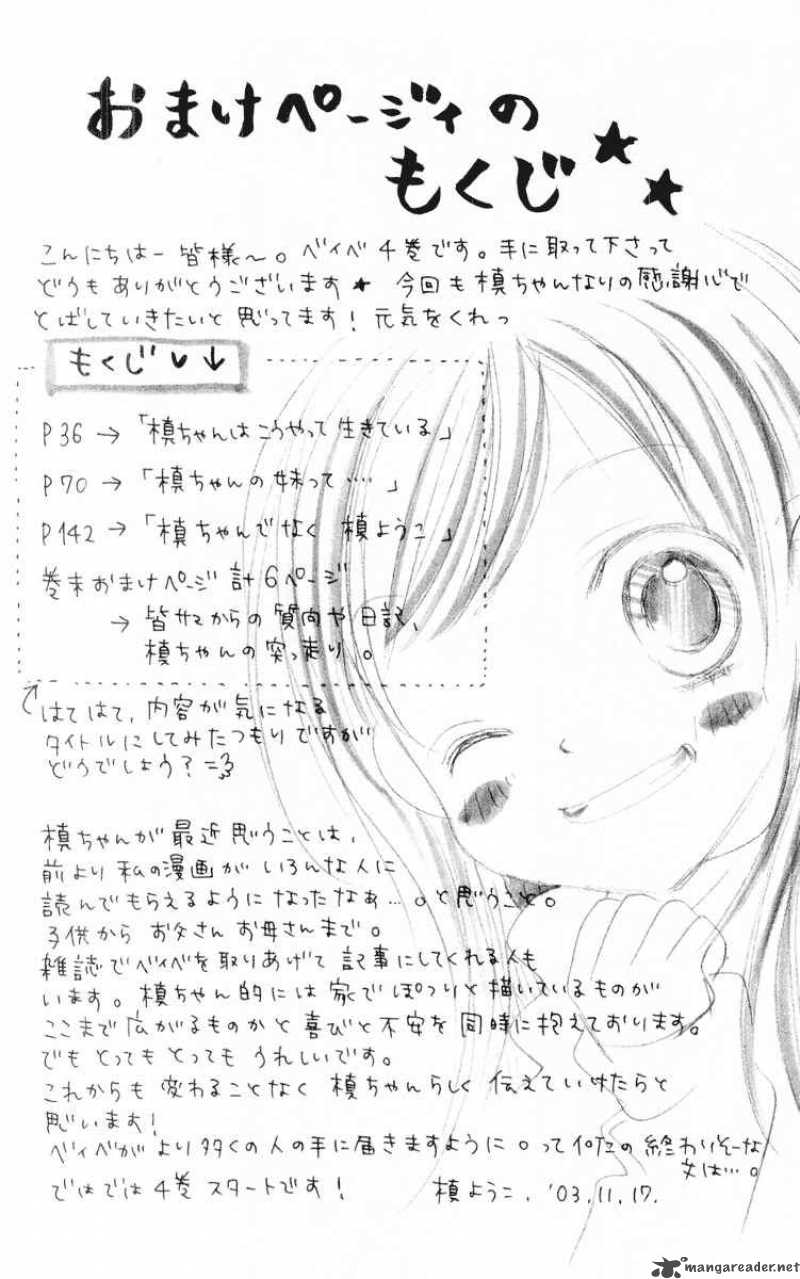 おまけページィの
もくじ★★
こんにちはー皆様〜。ベイベ4巻です。手に取って下さって
どうもありがとうございます★ 今回も槙ちゃんなりの感謝心で
とばしていきたいと思ってます！元気をくれっ
もくじ♥↓
P36→「槙ちゃんはこうやって生きている」
P70→「槙ちゃんの妹って‥‥」
P142→「槙ちゃんでなく 槙ようこ」
巻末おまけページ 計6ページ
→皆サマからの質問や日記、
槙ちゃんの突っ走り。
はてはて、内容が気になる
タイトルにしてみたつもりですが
どうでしょう？
槙ちゃんが最近思うことは、
前より私の漫画がいろんな人に
読んでもらえるようになったなぁ…。と思うこと。
子供からお父さんお母さんまで。
雑誌でベイベを取りあげて記事にしてくれる人も
います。槙ちゃん的には家でぽつりと描いているものが
ここまで広がるものかと喜びと不安を同時に抱えております。
でもとってもとってもうれしいです。
これからも変わることなく槙ちゃんらしく伝えていけたらと
思います！
ベイベがより多くの人の手に届きますように。って何だの終わりそーな
文は…。
ではでは4巻スタートです！ 槙ようこ、'03.11.17.
mangareader.net